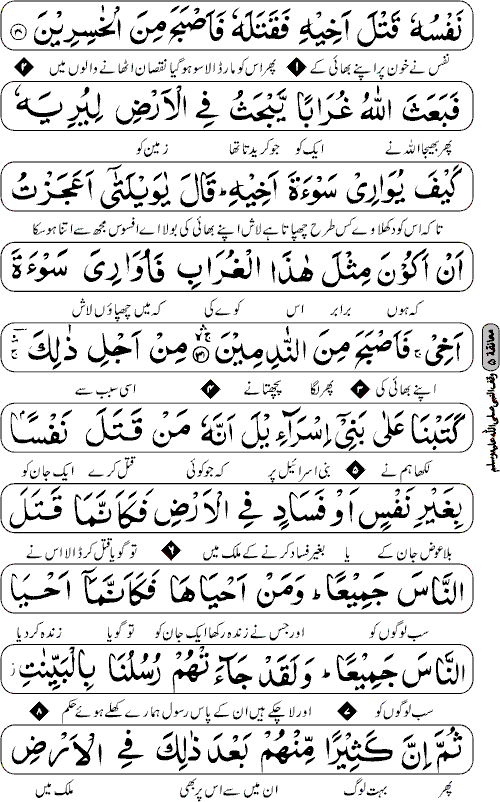 نَفْسُهٗ قَتْلَ اَخِيْهِ فَقَتَلَهٗ فَاَصْبَحَ مِنَ الْخٰسِرِيْنَ ﴿۳۰﴾
نفس نے خون پر اپنے بھائی کے ۱ پھر اس کو مار ڈالا سو ہوگیا نقصان اٹھانے والوں میں ۲
فَبَعَثَ اللّٰهُ غُرَابًا يَّبْحَثُ فِى الْاَرْضِ لِيُرِيَهٗ
پھر بھیجا اللہ نے ایک کو جو کریدتا تھا زمین کو
كَيْفَ يُوَارِىْ سَوْءَةَ اَخِيْهِ ؕ قَالَ يٰوَيْلَتٰٓى اَعَجَزْتُ
تاکہ اس کو دکھلاوے کس طرح چھپاتا ہے لاش اپنے بھائی کی بولا اے افسوس مجھ سے اتنا نہ ہو سکا
اَنْ اَكُوْنَ مِثْلَ هٰذَا الْغُرَابِ فَاُوَارِىَ سَوْءَةَ
کہ ہوں برابر اس کوے کی کہ میں چھپاؤں لاش
اَخِىْ ۚ فَاَصْبَحَ مِنَ النّٰدِمِيْنَ ﴿۳۱﴾ مِنْ اَجْلِ ذٰلِكَ
اپنے بھائی کی ۳ پھر لگا پچھتانے ۴ اسی سبب سے
معانقة ۵ وقف النبي صلى الله عليه وسلم
كَتَبْنَا عَلٰى بَنِىْٓ اِسْرَآءِيْلَ اَنَّهٗ مَنْ قَتَلَ نَفْسًۢا
لکھا ہم نے ۵ بنی اسرائیل پر کہ جو کوئی قتل کرے ایک جان کو
بِغَيْرِ نَفْسٍ اَوْ فَسَادٍ فِى الْاَرْضِ فَكَاَنَّمَا قَتَلَ
بلا عوض جان کے یا بغیر فساد کرنے کے ملک میں ۶ تو گویا قتل کر ڈالا اس نے
النَّاسَ جَمِيْعًا ؕ وَمَنْ اَحْيَاهَا فَكَاَنَّمَآ اَحْيَا
سب لوگوں کو اور جس نے زندہ رکھا ایک جان کو تو گویا زندہ کر دیا
النَّاسَ جَمِيْعًا ؕ وَلَقَدْ جَآءَتْهُمْ رُسُلُنَا بِالْبَيِّنٰتِ
سب لوگوں کو ۷ اور لا چکے ہیں ان کے پاس رسول ہمارے کھلے ہوئے حکم ۸
ثُمَّ اِنَّ كَثِيْرًا مِّنْهُمْ بَعْدَ ذٰلِكَ فِى الْاَرْضِ
پھر بہت لوگ ان میں سے اس پر بھی ملک میں